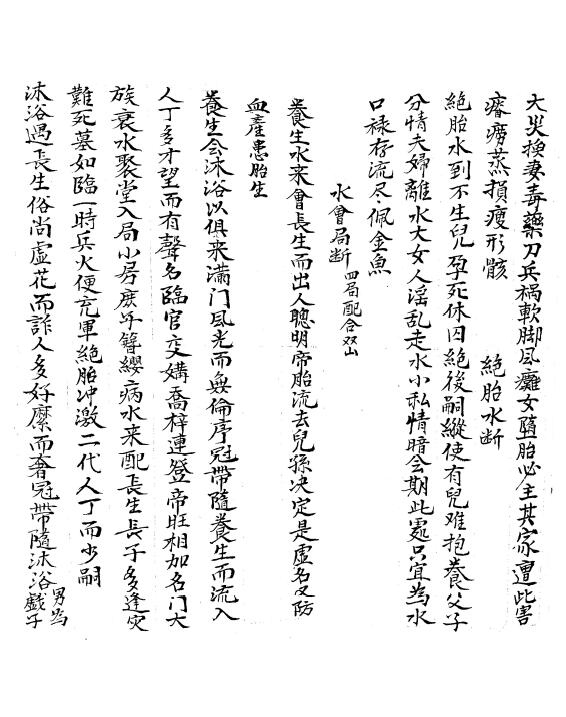 大災換妻毒藥刀兵禍軟脚風癱女墮胎必主其家遭此害
瘠癆蒸損瘦形骸　絕胎水斷
絕胎水到不生兒孕死休囚絕後嗣縱使有兒难抱養父子
分情夫婦離水大女人淫乱走水小私情暗会期此處只宜為水
口禄存流尽佩金魚
水會局断 四局配合双山
養生水来會長生而出人聰明帝胎流去兒孫决定是虛名又防
血產患胎生
養生会沐浴以俱来滿门風光而無倫序冠帶隨養生而流入
人丁多才望而有聲名臨官交媾喬梓連登帝旺相加名门大
族衰水聚堂入局小房庶子簪纓病水来配長生長子多逢灾
難死墓如臨一時兵火便充軍絕胎冲激二代人丁而少嗣
沐浴遇長生俗尚虛花而詐人多好縻而奢冠帶隨沐浴男為戲子